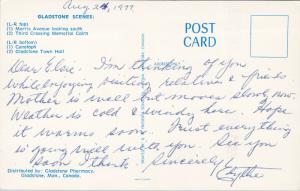 Aug 24, 1977
GLADSTONE SCENES:
(L-R top)
(1) Morris Avenue looking south
(2) Third Crossing Memorial Cairn
(L-R bottom)
(1) Cenotaph
(2) Gladstone Town Hall
POST
CARD
Dear Elsie. I'm thinking of you
while enjoying visiting relative & friends
Mother is well but moves slowly now.
Weather is cold & windy here. Hope
it warms soon. Trust everything
is going well with you. See you
soon I think. Sincerely,
Edythe
Distributed by: Gladstone Pharmacy,
Gladstone, Man., Canada.